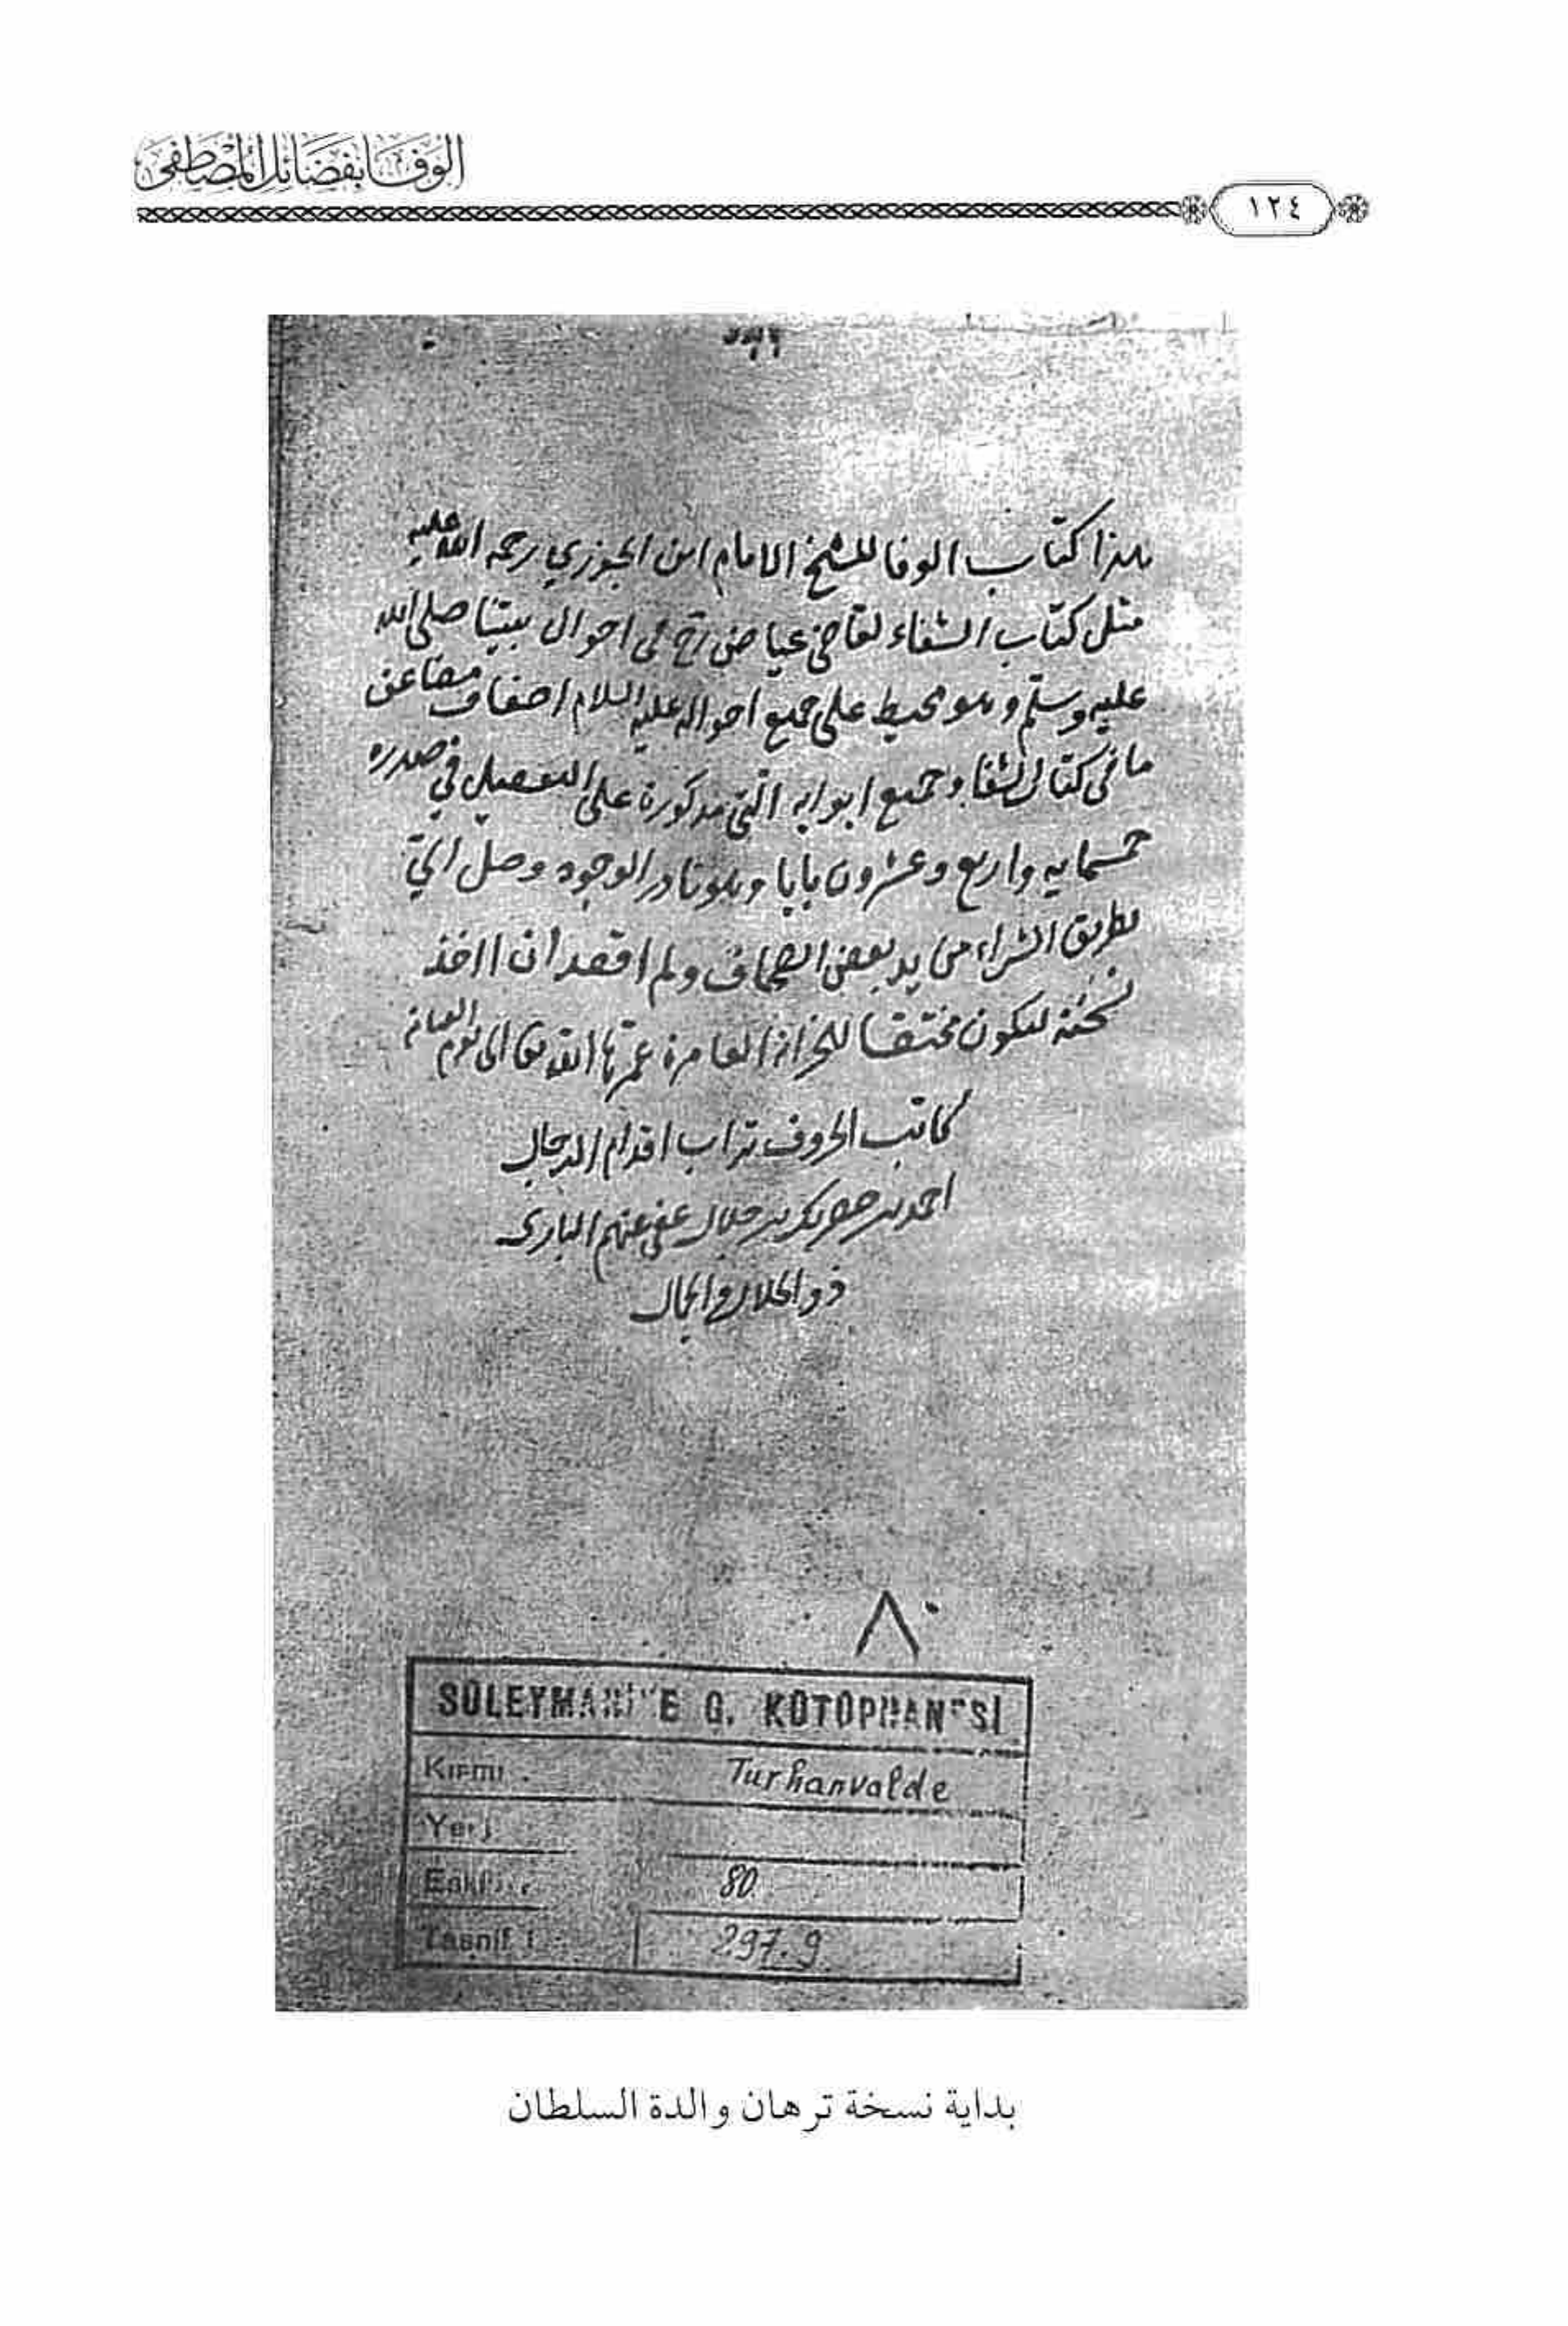 الوفا بفضائل المصطفى
١٢٤
هذا كتاب الوفا للشيخ الامام ابن الجوزي رحمه الله عليه
مثل كتاب الشفاء لقاضي عياض رح في احوال نبينا صلى الله
عليه وسلم وهو محيط على جميع احواله عليه السلام اضعاف مضاعف
ما في كتاب الشفا وجميع ابوابه التي مذكورة على التفصيل في صدره
خمسمايه واربع وعشرون بابا وهو نادر الوجود وصل الي
بطريق الشراء من يد بعض الصحاف ولم اقصد ان ااخذ
نسخته ليكون مختصا للخزانة العامرة عمرها الله تعا الى يوم القيام
كاتب الحروف تراب اقدام الرجال
احمد بن خضر بك بن جلال عفى عنهم البارى
ذو الجلال والجمال
٨٠
SÜLEYMANİYE G. KÜTÜPHANESİ
Kısmı Turhanvalde
Yeni
Eski 80
Tasnif 297.9
بداية نسخة ترهان والدة السلطان